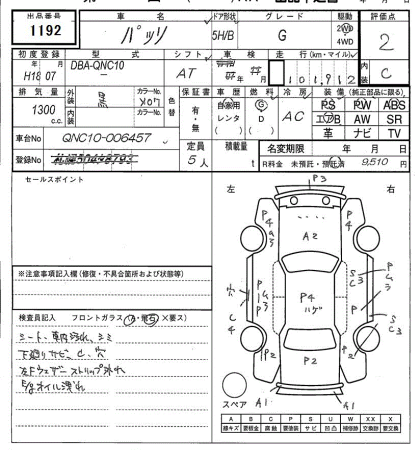 出品番号 車名 ドア形状 グレード 駆動 評価点
1192 パッソ 5H/B G 2WD 4WD 2
初度登録 型式 シフト 車検 走行(km・マイル) 内装
H18 年 07 月 DBA-QNC10 AT 年 月 101,912 C
排気量 外装 カラーNo. 色替 保証書 車歴 燃料 冷房 装備(純正部品に限る)
1300 c.c. 黒 X07 有・無 自家用 レンタ G D AC PS PW ABS
内装 カラーNo. エアB AW SR
革 ナビ TV
車台No QNC10-006457 定員 積載量 名変期限 年 月 日
登録No 5人 t R料金 未預託・預託済 9,510 円
セールスポイント
左 右
※注意事項記入欄(修復・不具合箇所および状態等)
検査員記入 フロントガラス(A・飛石×要ス)
シート、車内汚れ、シミ
下廻りサビ、C、穴
左Fウェザーストリップ外れ
E/gオイル漉れ
P3
A2
P4
ハゲ
P2
A1
A1
スペア
A B C P S U W X XX X
線キズ 要板金 腐触 要塗装 サビ 凹凸 補修跡 交換跡 要交換